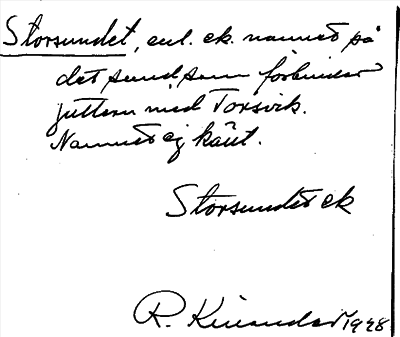 Storsundet, enl. ek. namnet på
det sund, som förbinder
Juttern med Torsvik.
Namnet ej känt.
Storsundet ek
R. 1928